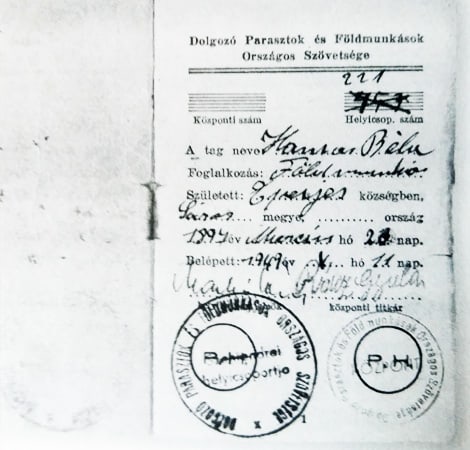 Dolgozó Parasztok és Földmunkások
Országos Szövetsége
221
Központi szám
Helyicsop. szám
A tag neve Béla
Foglalkozás:
Született: Eperjes községben,
Sáros megye, ország
év Március hó 28 nap.
Belépett: 1949 év X. hó 11 nap.
központi titkár
DOLGOZÓ PARASZTOK ÉS FÖLDMUNKÁSOK ORSZÁGOS SZÖVETSÉGE
helyicsoportja
x 1
Dolgozó Parasztok és Földmunkások Országos Szövetsége
P. H.
KÖZPONT